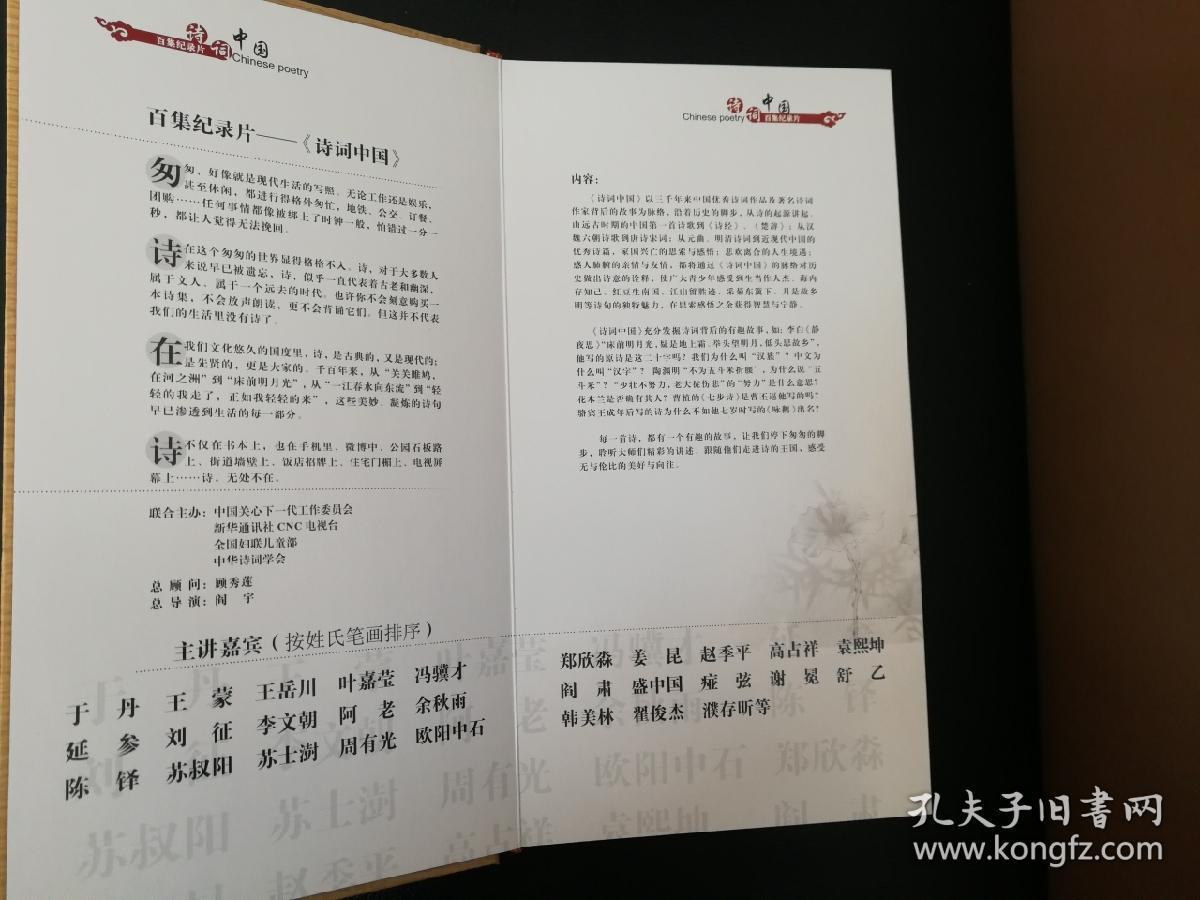 诗词中国
百集纪录片
Chinese poetry
百集纪录片——《诗词中国》
匆匆、好像就是现代生活的写照。无论工作还是娱乐,
甚至休闲,都进行得格外匆忙,地铁、公交、订餐、
团购……任何事情都像被绑上了时钟一般,怕错过一分一
秒,都让人觉得无法挽回。
诗在这个匆匆的世界显得格格不入。诗,对于大多数人
来说早已被遗忘,诗,似乎一直代表着古老和幽深,
属于文人、属于一个远去的时代。也许你不会刻意购买一
本诗集,不会放声朗读、更不会背诵它们。但这并不代表
我们的生活里没有诗了。
在我们文化悠久的国度里,诗,是古典的,又是现代的;
是圣贤的,更是大家的。千百年来,从“关关雎鸠,
在河之洲”到“床前明月光”,从“一江春水向东流”到“轻
轻的我走了,正如我轻轻的来”,这些美妙、凝炼的诗句
早已渗透到生活的每一部分。
诗不仅在书本上,也在手机里、微博中、公园石板路
上、街道墙壁上、饭店招牌上、住宅门楣上、电视屏
幕上……诗,无处不在。
联合主办:中国关心下一代工作委员会
新华通讯社CNC电视台
全国妇联儿童部
中华诗词学会
总 顾 问:顾秀莲
总 导 演:阎 宇
主讲嘉宾(按姓氏笔画排序)
于 丹 王 蒙 王岳川 叶嘉莹 冯骥才
延 参 刘 征 李文朝 阿 老 余秋雨
陈 铎 苏叔阳 苏士澍 周有光 欧阳中石
诗词中国
Chinese poetry 百集纪录片
内容:
《诗词中国》以三千年来中国优秀诗词作品及著名诗词
作家背后的故事为脉络,沿着历史的脚步,从诗的起源讲起。
由远古时期的中国第一首诗歌到《诗经》、《楚辞》;从汉
魏六朝诗歌到唐诗宋词;从元曲、明清诗词到近现代中国的
优秀诗篇,家国兴亡的思索与感悟;悲欢离合的人生境遇;
感人肺腑的亲情与友情,都将通过《诗词中国》的脉络对历
史做出诗意的诠释,使广大青少年感受到生当作人杰、海内
存知己、红豆生南国、江山留胜迹、采菊东篱下、月是故乡
明等诗句的独特魅力,在思索感悟之余获得智慧与宁静。
《诗词中国》充分发掘诗词背后的有趣故事,如:李白《静
夜思》“床前明月光,疑是地上霜。举头望明月,低头思故乡”,
他写的原诗是这二十字吗?我们为什么叫“汉族”?中文为
什么叫“汉字”?陶渊明“不为五斗米折腰”,为什么说“五
斗米”?“少壮不努力,老大徒伤悲”的“努力”是什么意思?
花木兰是否确有其人?曹植的《七步诗》是曹丕逼他写的吗?
骆宾王成年后写的诗为什么不如他七岁时写的《咏鹅》出名?
每一首诗,都有一个有趣的故事,让我们停下匆匆的脚
步,聆听大师们精彩的讲述。跟随他们走进诗的王国,感受
无与伦比的美好与向往。
郑欣淼 姜 昆 赵季平 高占祥 袁熙坤
阎 肃 盛中国 痖 弦 谢 冕 舒 乙
韩美林 翟俊杰 濮存昕等
刘
周有光 欧阳中石 郑欣淼
苏叔阳 苏士澍
高占祥 袁熙坤 阎 肃
赵季平
孔夫子旧书网
www.kongfz.com